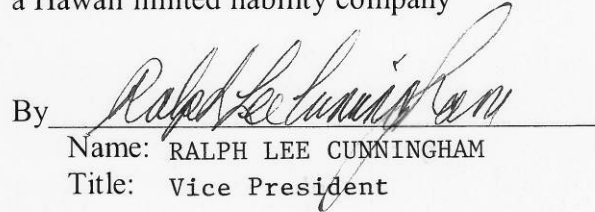 a Hawaii limited liability company
By Ralph Lee Cunningham
Name: RALPH LEE CUNNINGHAM
Title: Vice President